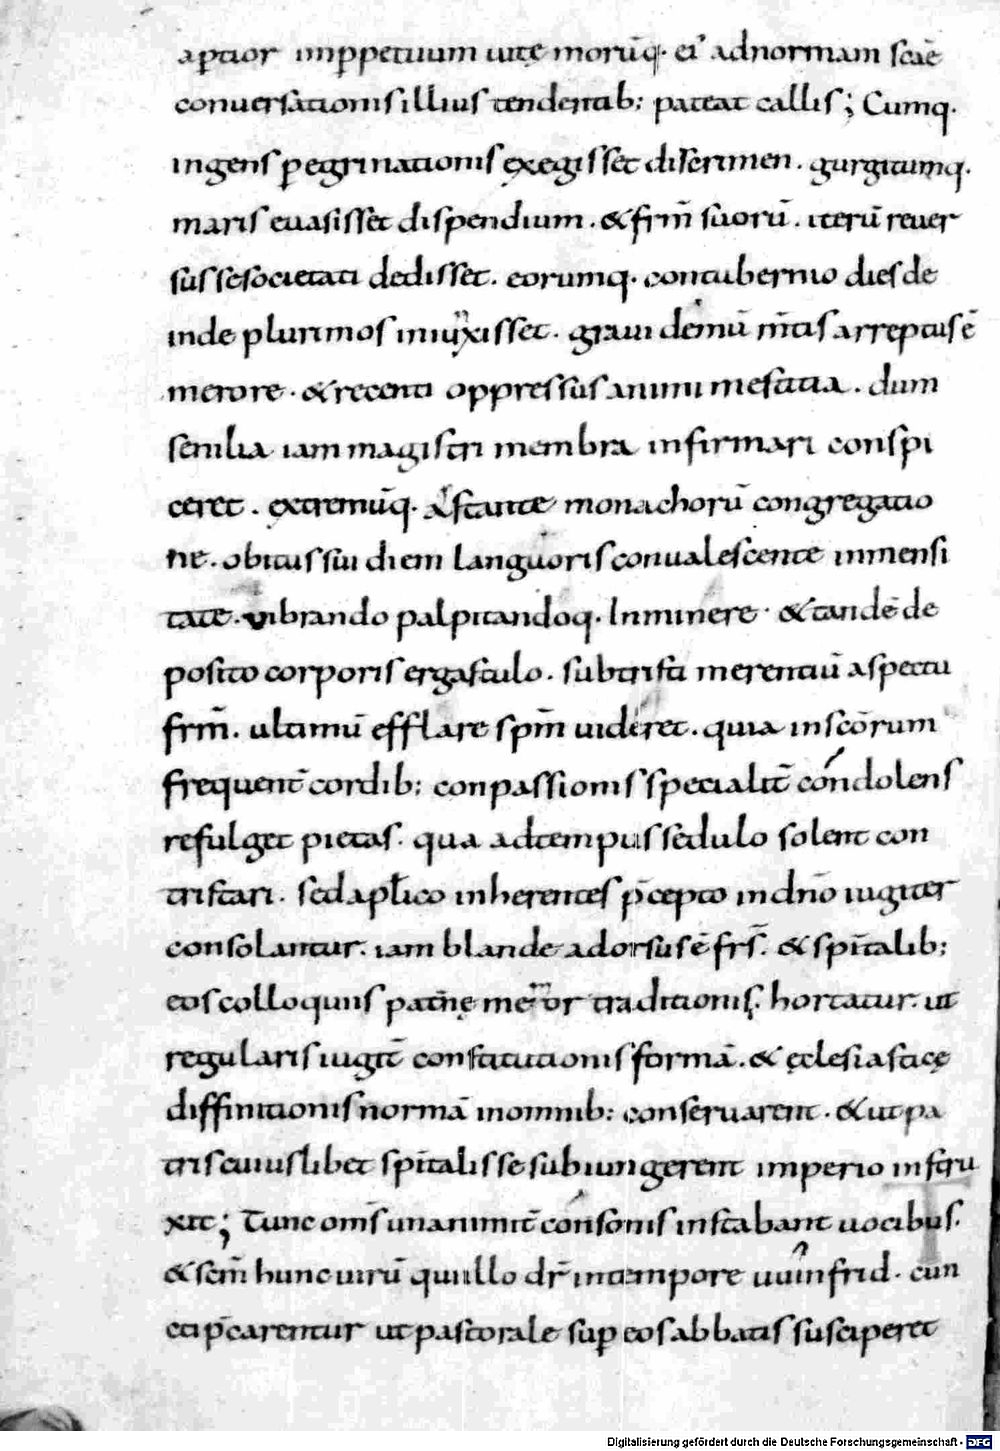 aptior inp̲petuum uitę morūq· ei᾽ adnormam scāe
conuersationis illius tendentib; pateat callis; Cumq·
ingens p̲egrinationis exegisset discrimen· gurgitumq·
maris euasisset dispendium· & frm̄ suorū· iterū reuer
sus se societati dedisset· eorumq· contubernio dies de
inde plurimos iniunxisset· graui demū m̄tis arreptus ē
merore· & recenti oppressus animi mestitia· dum
senilia iam magistri membra infirmari conspi
ceret· extremūq· astante monachorū congregatio
ne· obitus sui diem languoris conualescente inmensi
tate· vibrando palpitandoq· Inminere· & tandē de
posito corporis ergastulo· subtristi merentiū aspectu
frm̄· ultimū efflare spm̄ uideret· quia inscōrum
frequent̄ cordib; conpassionis specialit̄ condolens
refulget pietas· qua adtempus sedulo solent con
tristari· sed aplico inherentes p̄cepto in dnō iugiter
consolantur· iam blande adorsus ē frs̄· & spītalib;
eos colloquiis patn̄ę memor traditionis· hortatur· ut
regularis iugit̄ constitutionis formā· & ęclesiasticę
diffinitionis normā inomnib; conseruarent· & ut pa
tris cuiuslibet spītalis se subiungerent imperio instru
xit; Tunc oms̄ unanimit̄ consonis instabant uocibus·
& sem̄ hunc uirū qui illo dr̄ intempore uuinfrid· cun
cti p̄carentur ut pastorale sup̲ eos abbatis susciperet
Digitalisierung gefördert durch die Deutsche Forschungsgemeinschaft - DFG